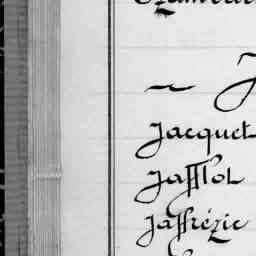 J
Jacquet
Jafflot
Jaffrézic